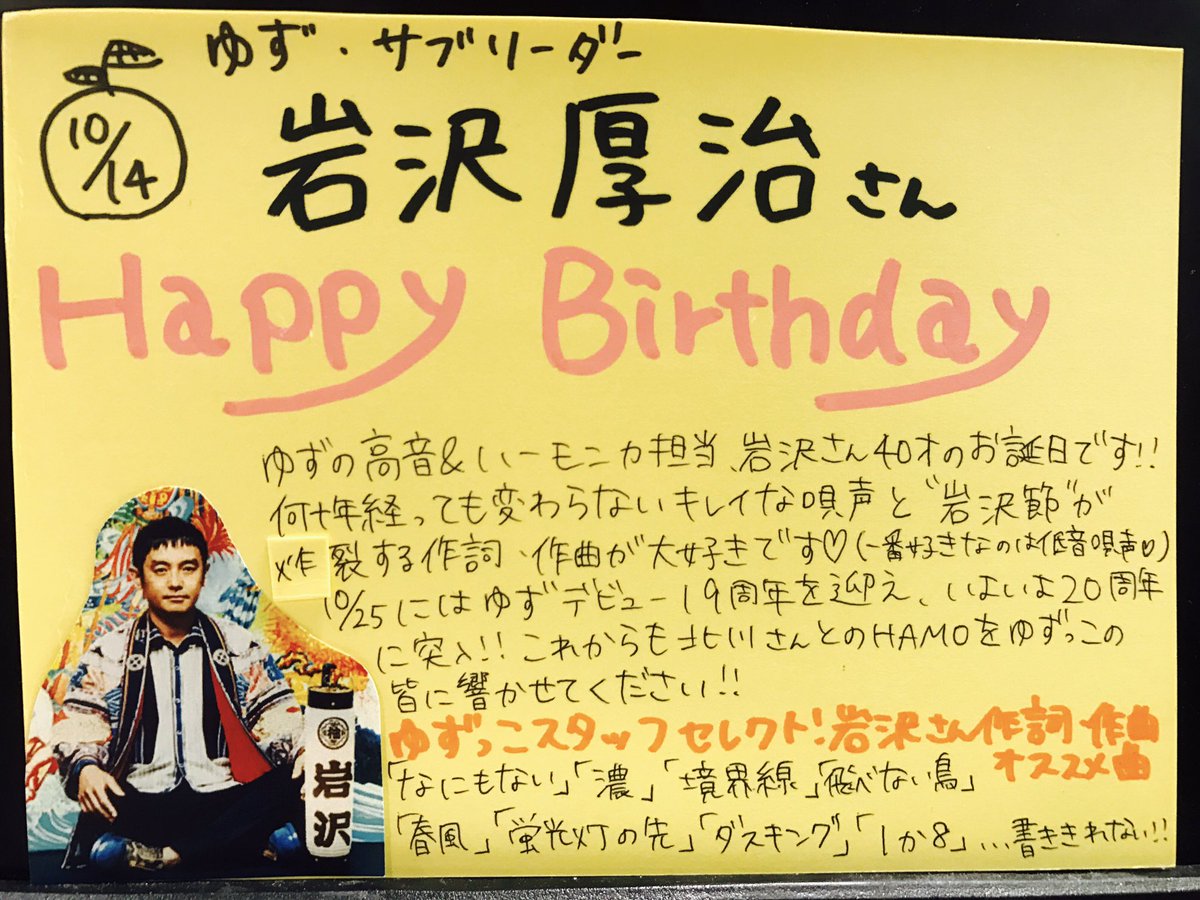 ゆず・サブリーダー
10/14
岩沢厚治さん
Happy Birthday
ゆずの高音&ハーモニカ担当、岩沢さん40才のお誕日です!!
何十年経っても変わらないキレイな唄声と"岩沢節"が
炸裂する作詞、作曲が大好きです♡(一番好きなのは低音唄声♡)
10/25にはゆずデビュー19周年を迎え、いよいよ20周年
に突入!!これからも北川さんとのHAMOをゆずっこの
皆に響かせてください!!
ゆずっこスタッフセレクト!岩沢さん作詞 作曲
オススメ曲
「なにもない」「濃」「境界線」「飛べない鳥」
「春風」「蛍光灯の先」「ダスキング」「1か8」...書ききれない!!
岩沢